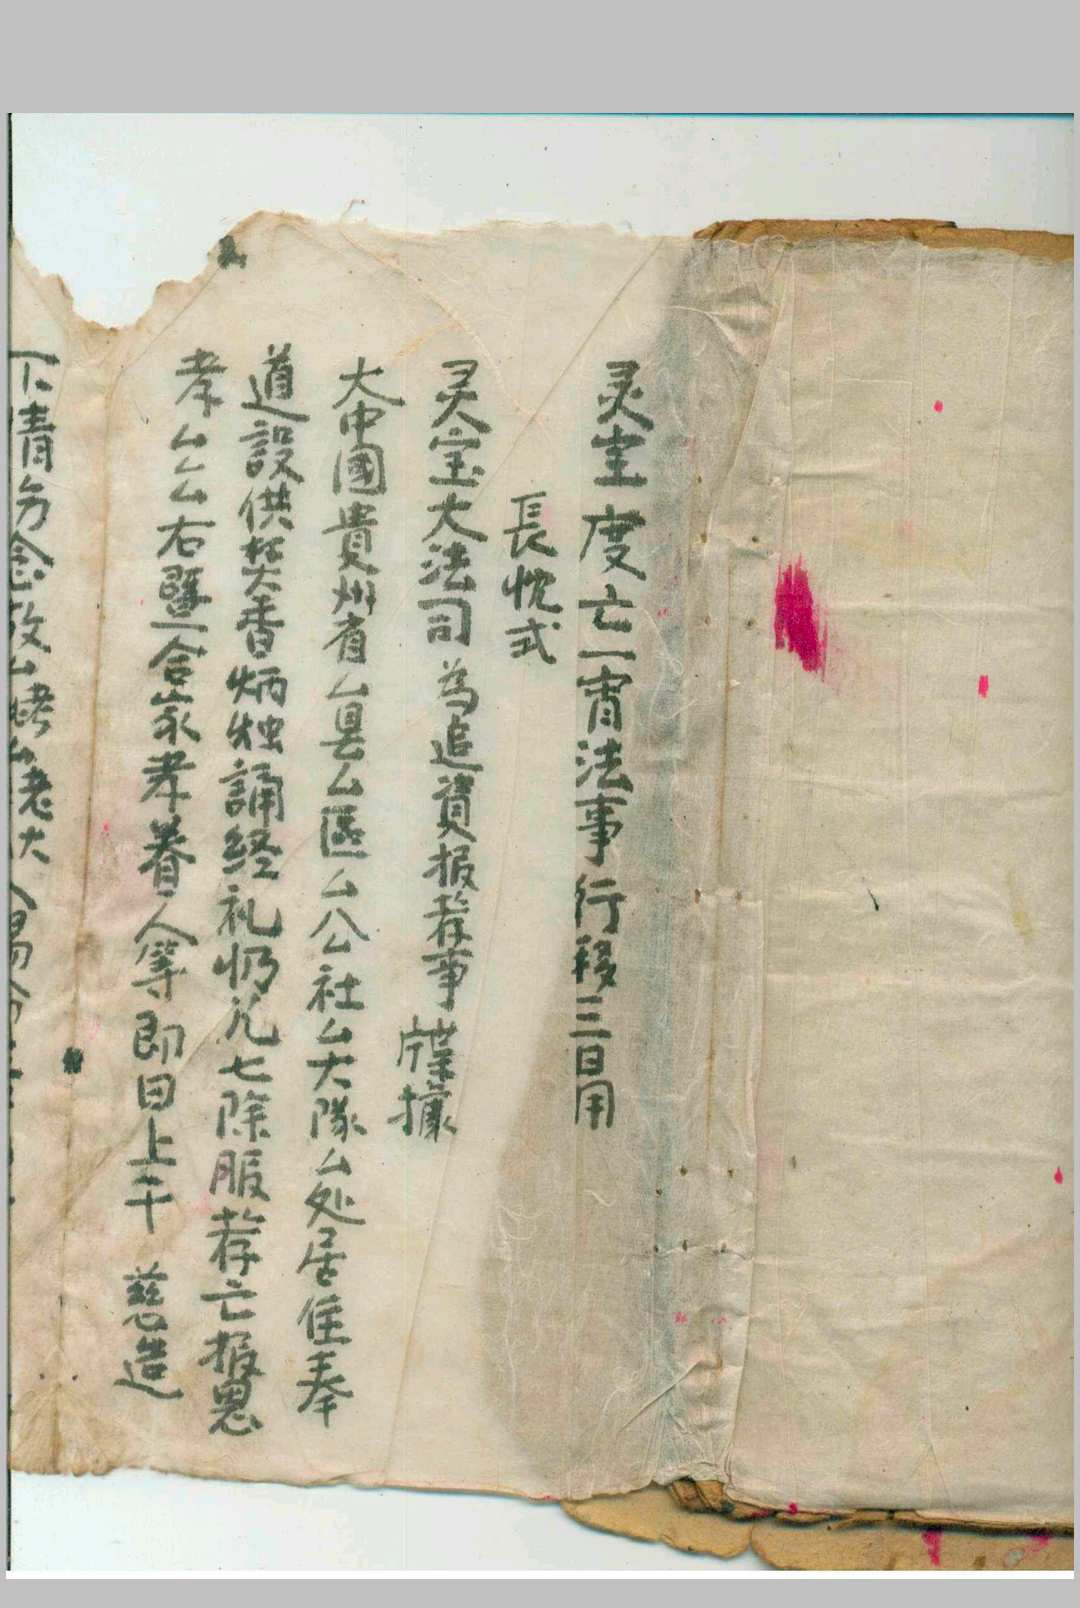 灵宝度亡一宵法事行移三日用
長忱式
灵宝大法司 為追資报荐事 牒據
大中國貴州省厶县厶區厶公社厶大隊厶处居住奉
道設供焚香炳烛誦経礼忏 七除服荐亡报恩
孝厶厶右暨合家孝眷人等即日上干 慈造
下情切念故 老大人